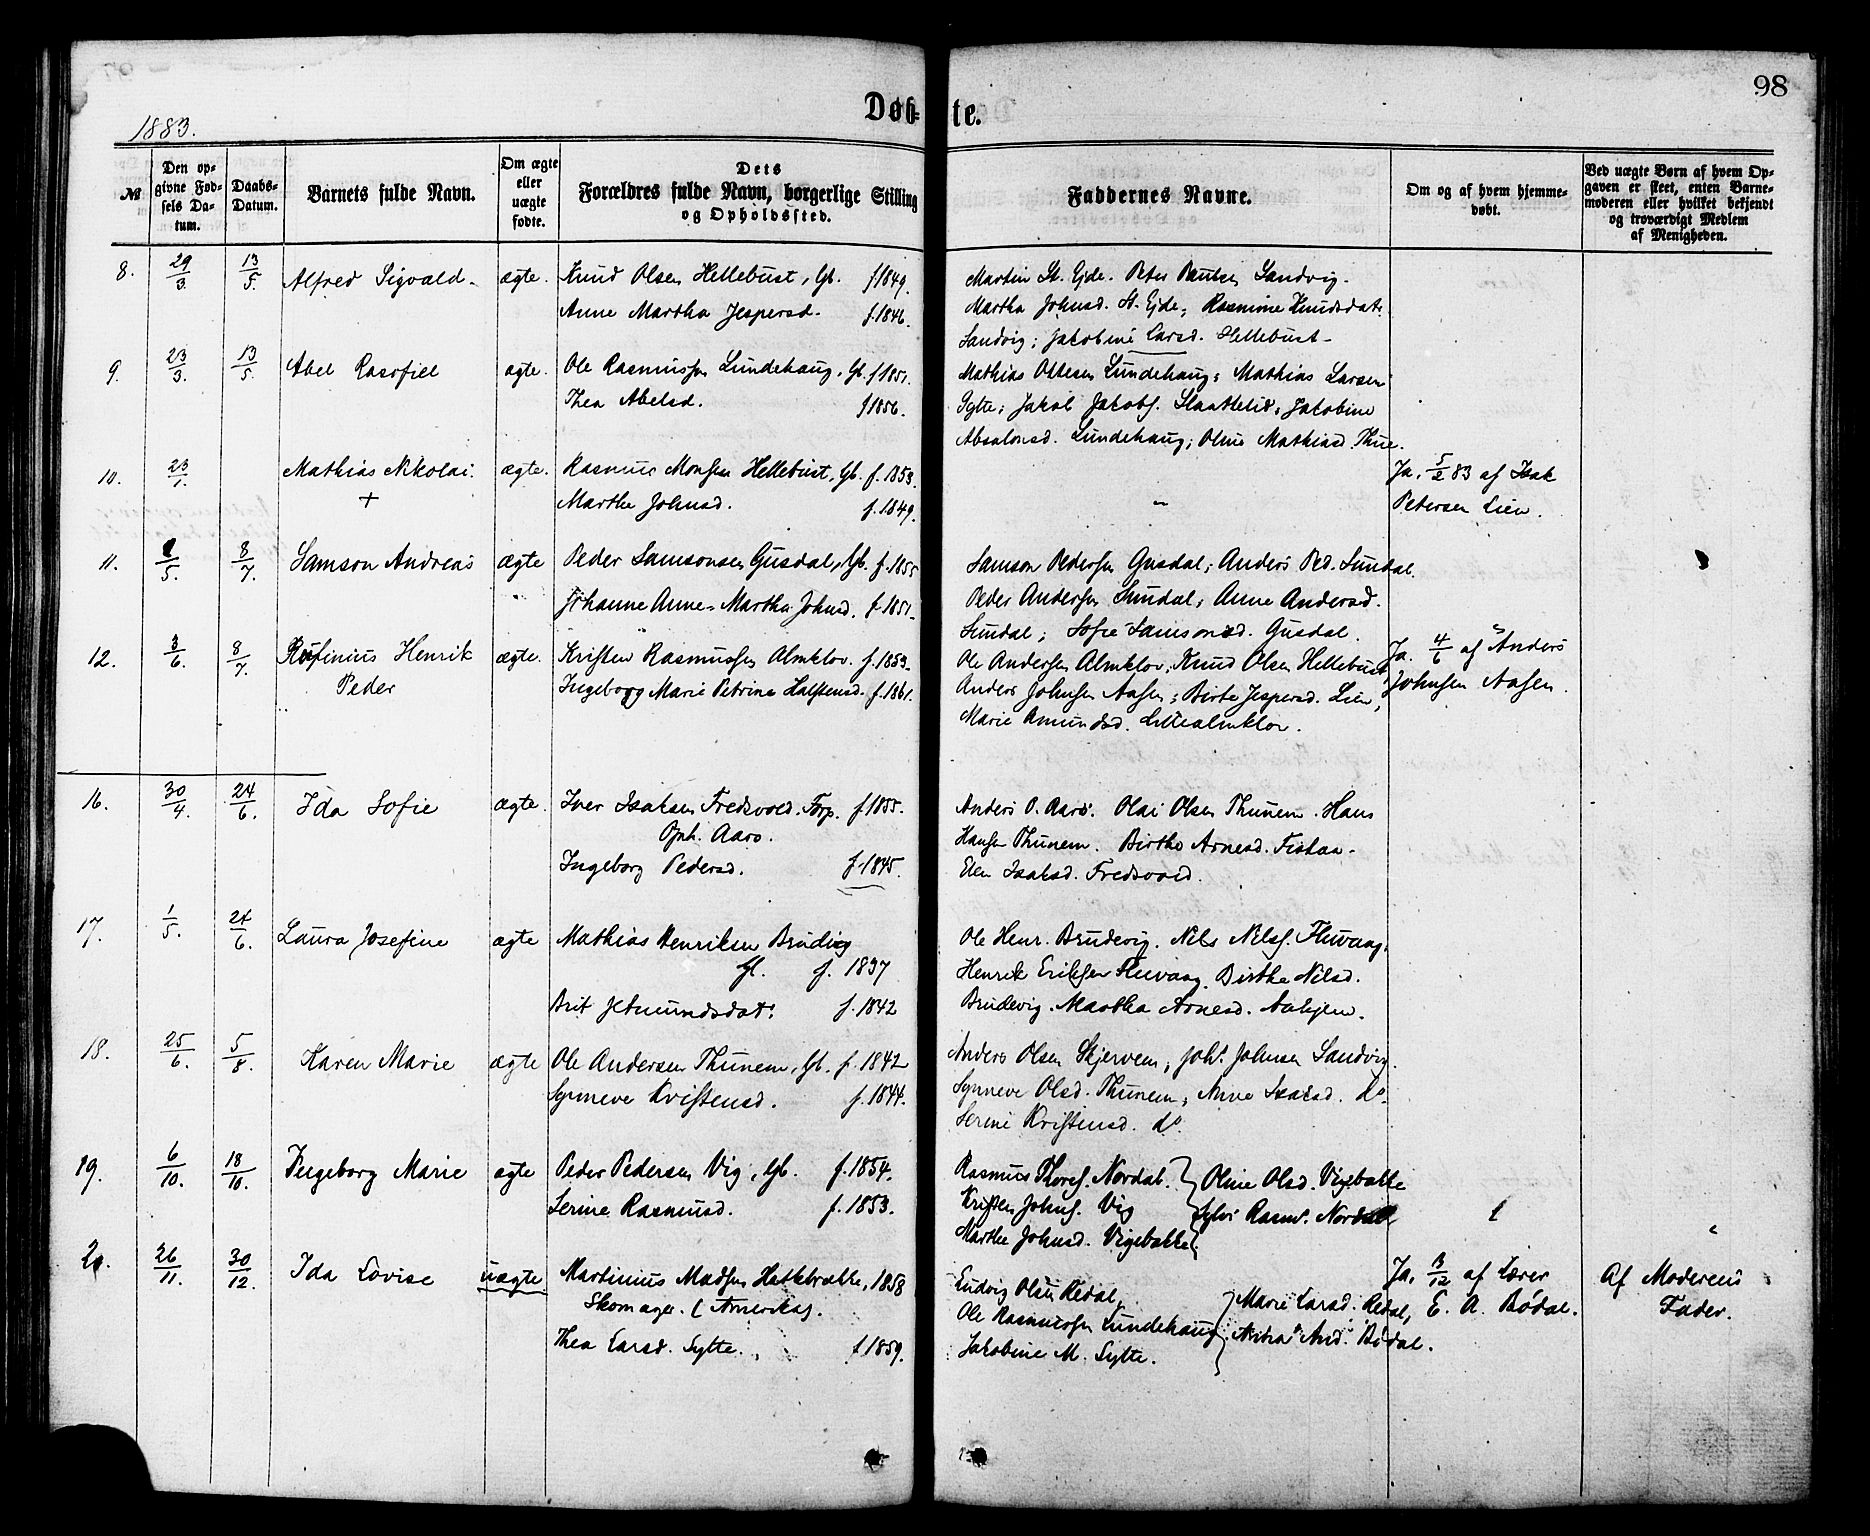 98
Døb- te.
1883.
№
Den op-
givne Fød-
sels Da-
tum.
Daabs-
Datum.
Barnets fulde Navn.
Om ægte
eller
uægte
fødte.
Dets
Forældres fulde Navn, borgerlige Stilling
og Opholdssted.
Faddernes Navne.
Om og af hvem hjemme-
døbt.
Ved uægte Børn af hvem Op-
gaven er skeet, enten Barne-
moderen eller hvilket bekjendt
og troværdigt Medlem
af Menigheden.
8. 29/3. 13/5. Alfred Sigvald. ægte. Knud Olsen Hellebust, Gb. f 1849.
Anne Martha Jespersd. f. 1846.
Martin St. Ejde. Peter Sandvig.
Martha Johnsd. St. Ejde; Rasmine Knudsdatr
Sandvig; Jakobine Larsd. Hellebust.
9. 23/3. 13/5. Abel ægte. Ole Rasmussen Lundehaug, Gb. f 1851.
Thea Abelsd. f 1856.
Mathias Ottesen Lundehaug; Mathias Larsen
Sytte; Jakob Jakobs. Slaattelid; Jakobine
Absalonsd. Lundehaug; Oline Mathiasd Thue.
10. 23/1. Mathias Nikolai. ægte. Rasmus Monsen Hellebust, Gb. f. 1853.
+ Marthe Johnsd. f. 1849.
„
Ja. 5/2 83 af Isak
Petersen Lien.
11. /5. 8/7. Samson Andreas ægte Peder Samsonsen Gusdal, Gb. f. 1855
Johanne Anne-Martha Johnsd. f. 1851.
Samson Pedersen Gusdal; Anders Ped. Sundal.
Peder Andersen Sundal; Anne Andersd.
Sundal; Sofie Samsonsd. Gusdal.
12. 3/6. 8/7. Rufinius Henrik ægte. Kristen Rasmussen Almklov. f. 1859.
Peder Ingeborg Marie Petrine Halstensd. f. 1861.
Ole Andersen Almklov, Knud Olsen Hellebust,
Anders Johnsen Aasen; Birte Jespersd. Lien,
Marie Amundsd. Lillealmklov.
Ja. 4/6 af Anders
Johnsen Aasen.
16. 30/4. 24/6. Ida Sofie ægte. Iver Isaksen Fredsvoed. Forp. f 1855.
Oph. Aars.
Ingeborg Pedersd. f. 1845.
Anders O. Aars. Olai Olsen Thunem. Hans
Hansen Thunem. Birthe Arnesd. Fiskaa.
Elen Isaksd. Fredsvoed.
17. 1/5. 24/6. Laura Josefine ægte Mathias Henriksen Brudevig
Gl. f. 1837
Brit f. 1842
Ole Henr. Brudevig. Nils Nilss. Fluvaag.
Henrik Eriksen Fluvaag. Birthe Nilsd.
Brudevig. Martha Arnesd. Aahjem.
18. 25/6. 5/8. Karen Marie ægte Ole Andersen Thunem, Gb. f. 1842
Synneve Kristensd. f. 1844.
Anders Olsen Skjerveen, Joh. Johnsen Sandvig.
Synneve Olsd. Thunem; Anne Isaksd. do.
Serine Kristensd. do.
19. 6/10. 18/10. Ingeborg Marie ægte Peder Pedersen Vig, Gb. f. 1854.
Serine Rasmusd. f. 1853.
Rasmus Thores. Nordal. Oline Olsd. Vigebakke
Kristen Johns. Vig Sylvi Rasm. Nordal
Marthe Johnsd. Vigebakke.
20. 26/11. 30/12. Ida Lovise uægte Martinius Madsen Hakkebrække, 1858
Skomager. (Amerika).
Thea Larsd. Sytte. f 1859.
Ludvig Olsen Redal, Marie Larsd. Redal,
Ole Rasmussen Lundehaug, And. Bødal.
Jakobine M. Sytte.
Ja. 3/12 af Lærer
E. A. Bødal.
Af Moderens
Fader.